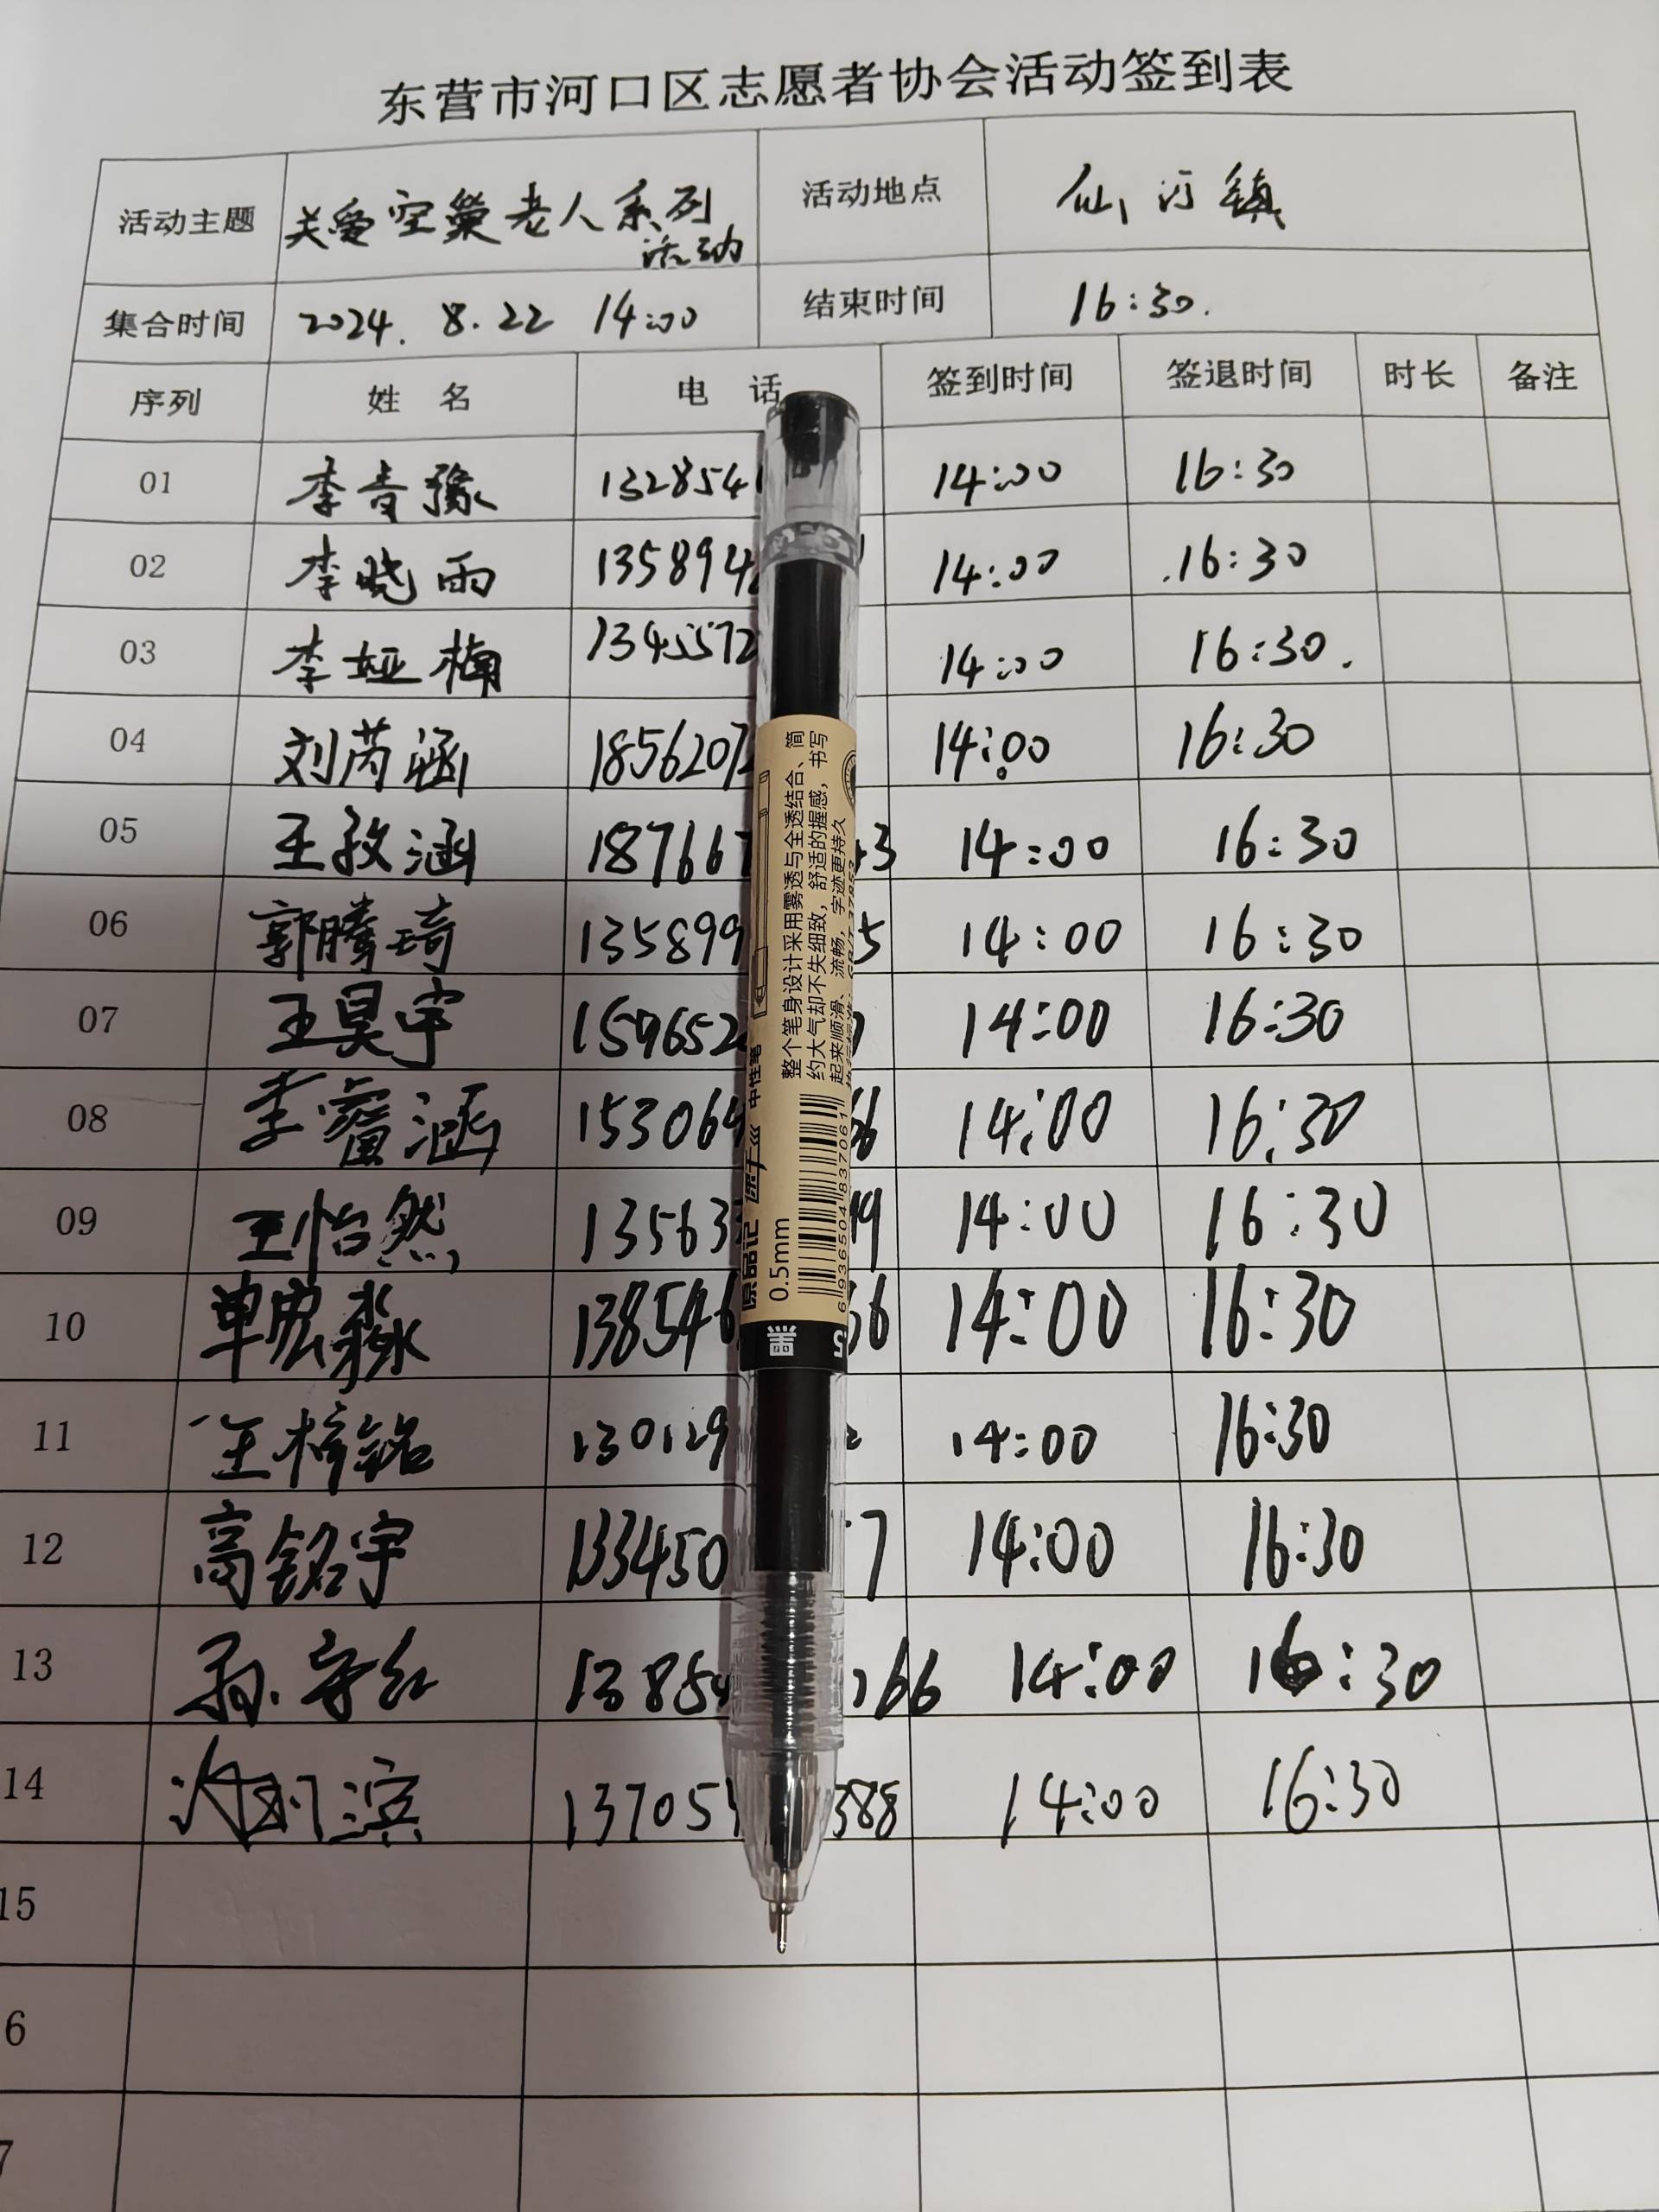 东营市河口区志愿者协会活动签到表
活动主题 关爱空巢老人系列活动 活动地点 仙河镇
集合时间 2024. 8.22 14:00 结束时间 16:30.
序列 姓名 电话 签到时间 签退时间 时长 备注
01 李青豫 1328541 14:00 16:30
02 李晓雨 1358942 14:00 16:30
03 李娅楠 1345572 14:00 16:30.
04 刘芮涵 18562072 14:00 16:30
05 王孜涵 187667 3 14:00 16:30
06 郭腾琦 135899 5 14:00 16:30
07 王昊宇 1596522 14:00 16:30
08 李睿涵 153064 66 14:00 16:30
09 王怡然 135633 99 14:00 16:30
10 单宏淼 138546 36 14:00 16:30
11 王梓铭 130129 2 14:00 16:30
12 高铭宇 133450 7 14:00 16:30
13 孙守红 13854 266 14:00 16:30
14 滨 137051 388 14:00 16:30
15
6
7
整个笔身设计采用雾透与全透结合、简
约大气却不失细致，舒适的握感，书写
起来顺滑、流畅，字迹更持久
中性笔
0.5mm
6936504837061
黑